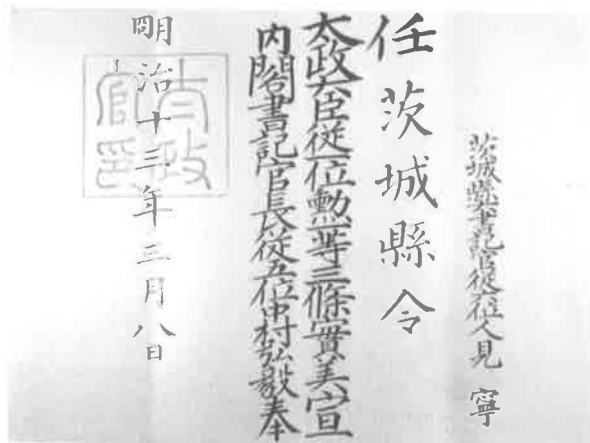 茨城縣大書記官從六位人見 寧
任茨城縣令
太政大臣從一位勲一等三條實美宣
内閣書記官長從五位中村弘毅奉
明治十三年三月八日
太政官印